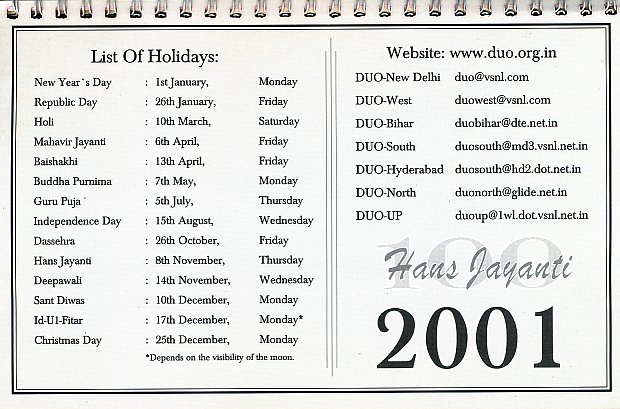 List Of Holidays:
New Year`s Day : 1st January, Monday
Republic Day : 26th January, Friday
Holi : 10th March, Saturday
Mahavir Jayanti : 6th April, Friday
Baishakhi : 13th April, Friday
Buddha Purnima : 7th May, Monday
Guru Puja : 5th July, Thursday
Independence Day : 15th August, Wednesday
Dassehra : 26th October, Friday
Hans Jayanti : 8th November, Thursday
Deepawali : 14th November, Wednesday
Sant Diwas : 10th December, Monday
Id-U1-Fitar : 17th December, Monday*
Christmas Day : 25th December, Monday
*Depends on the visibility of the moon.
Website: www.duo.org.in
DUO-New Delhi duo@vsnl.com
DUO-West duowest@vsnl.com
DUO-Bihar duobihar@dte.net.in
DUO-South duosouth@md3.vsnl.net.in
DUO-Hyderabad duosouth@hd2.dot.net.in
DUO-North duonorth@glide.net.in
DUO-UP duoup@1wl.dot.vsnl.net.in
100
Hans Jayanti
2001